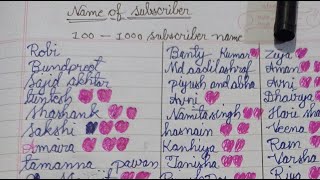 Name of subscriber
100 - 1000 subscriber name
Robi
Bundpreet
Sajid akhtar
Shashank
Sakshi
Amaira
tamanna pawan
Benty Kumar
Md aadil ashraf
piyush and abha
Avni
Namita singh
hasnain
Kanhiya
Tanisha
Ziya
Aman
Avni
Dhairya
Hari sha
Veena
Ram
Varsha
Riya